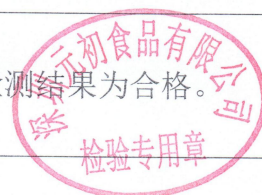 测结果为合格。
深圳元初食品有限公司
检验专用章